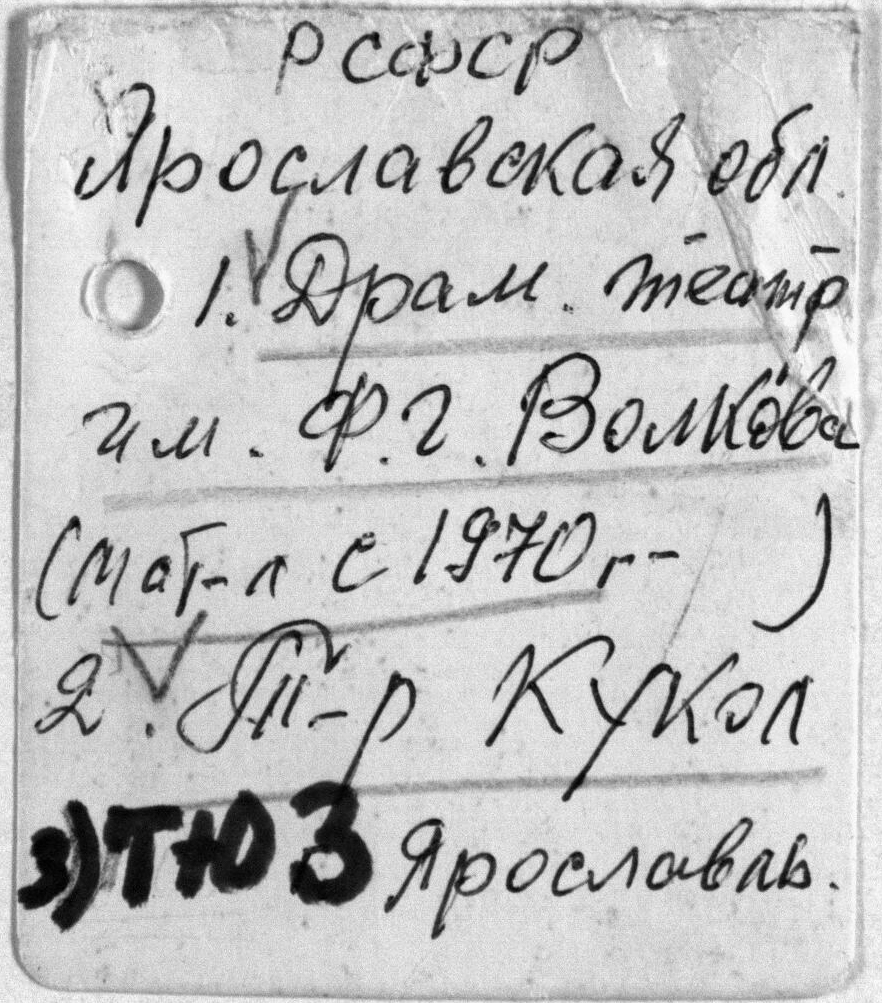 РСФСР
Ярославская обл.
1. Драм. театр
им. Ф.г. Волкова
(мат-л с 1970г- )
2. Т-р Кукол
3) ТЮЗ Ярославль.